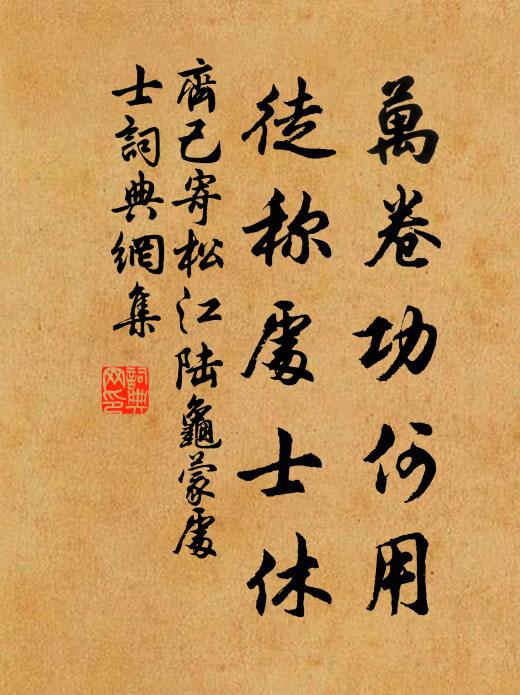 萬卷功何用
徒称處士休
齊己寄松江陆龜蒙處
士詞典網集
詞典
网印